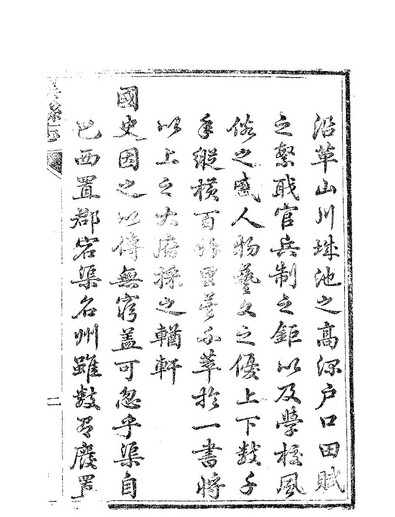 沿革山川城池之高深户口田賦
之繁職官兵制之鉅以及學校風
俗之感人物藝文之優上下數千
年縱橫百餘里薈而萃於一書將
以上之大府採之輶軒
國史因之以傳無窮蓋可忽乎渠自
巴西置郡宕渠名州雖數有廢置
二